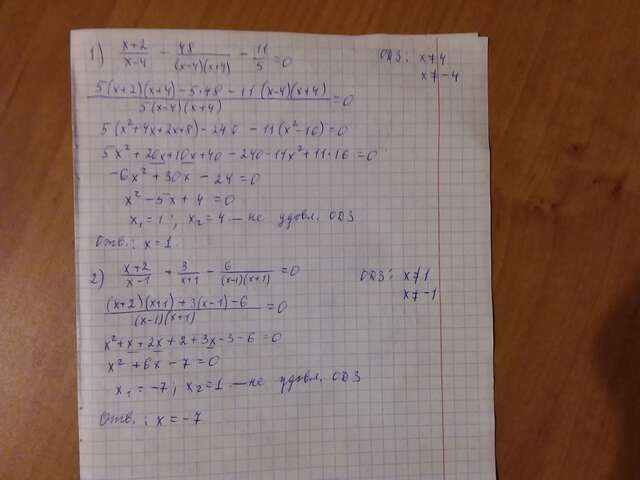 1) (x+2)/(x-4) - 48/((x-4)(x+4)) - 11/5 = 0 ОДЗ: x≠4
x≠-4
(5(x+2)(x+4) - 5·48 - 11(x-4)(x+4))/(5(x-4)(x+4)) = 0
5(x²+4x+2x+8) - 240 - 11(x²-16) = 0
5x² + 20x + 10x + 40 - 240 - 11x² + 11·16 = 0
-6x² + 30x - 24 = 0
x² - 5x + 4 = 0
x₁ = 1; x₂ = 4 — не удовл. ОДЗ
Отв.: x = 1
2) (x+2)/(x-1) + 3/(x+1) - 6/((x-1)(x+1)) = 0 ОДЗ: x≠1
x≠-1
((x+2)(x+1) + 3(x-1) - 6)/((x-1)(x+1)) = 0
x² + x + 2x + 2 + 3x - 3 - 6 = 0
x² + 6x - 7 = 0
x₁ = -7; x₂ = 1 — не удовл. ОДЗ
Отв.: x = -7